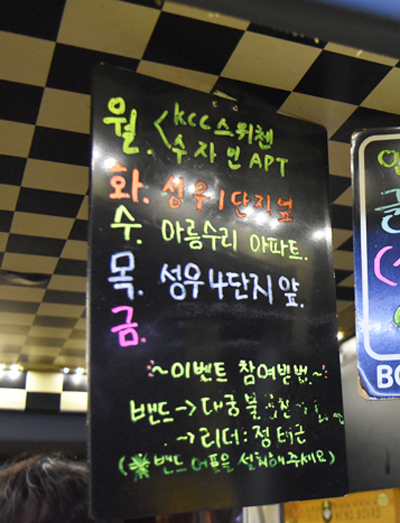 월. < kcc스위첸
수자인APT
화. 성우1단지앞
수. 아름수리 아파트.
목. 성우4단지 앞.
금.
~이벤트 참여방법~
밴드→대공
→리더:
(※밴드어플을 설치해주세요)
BO